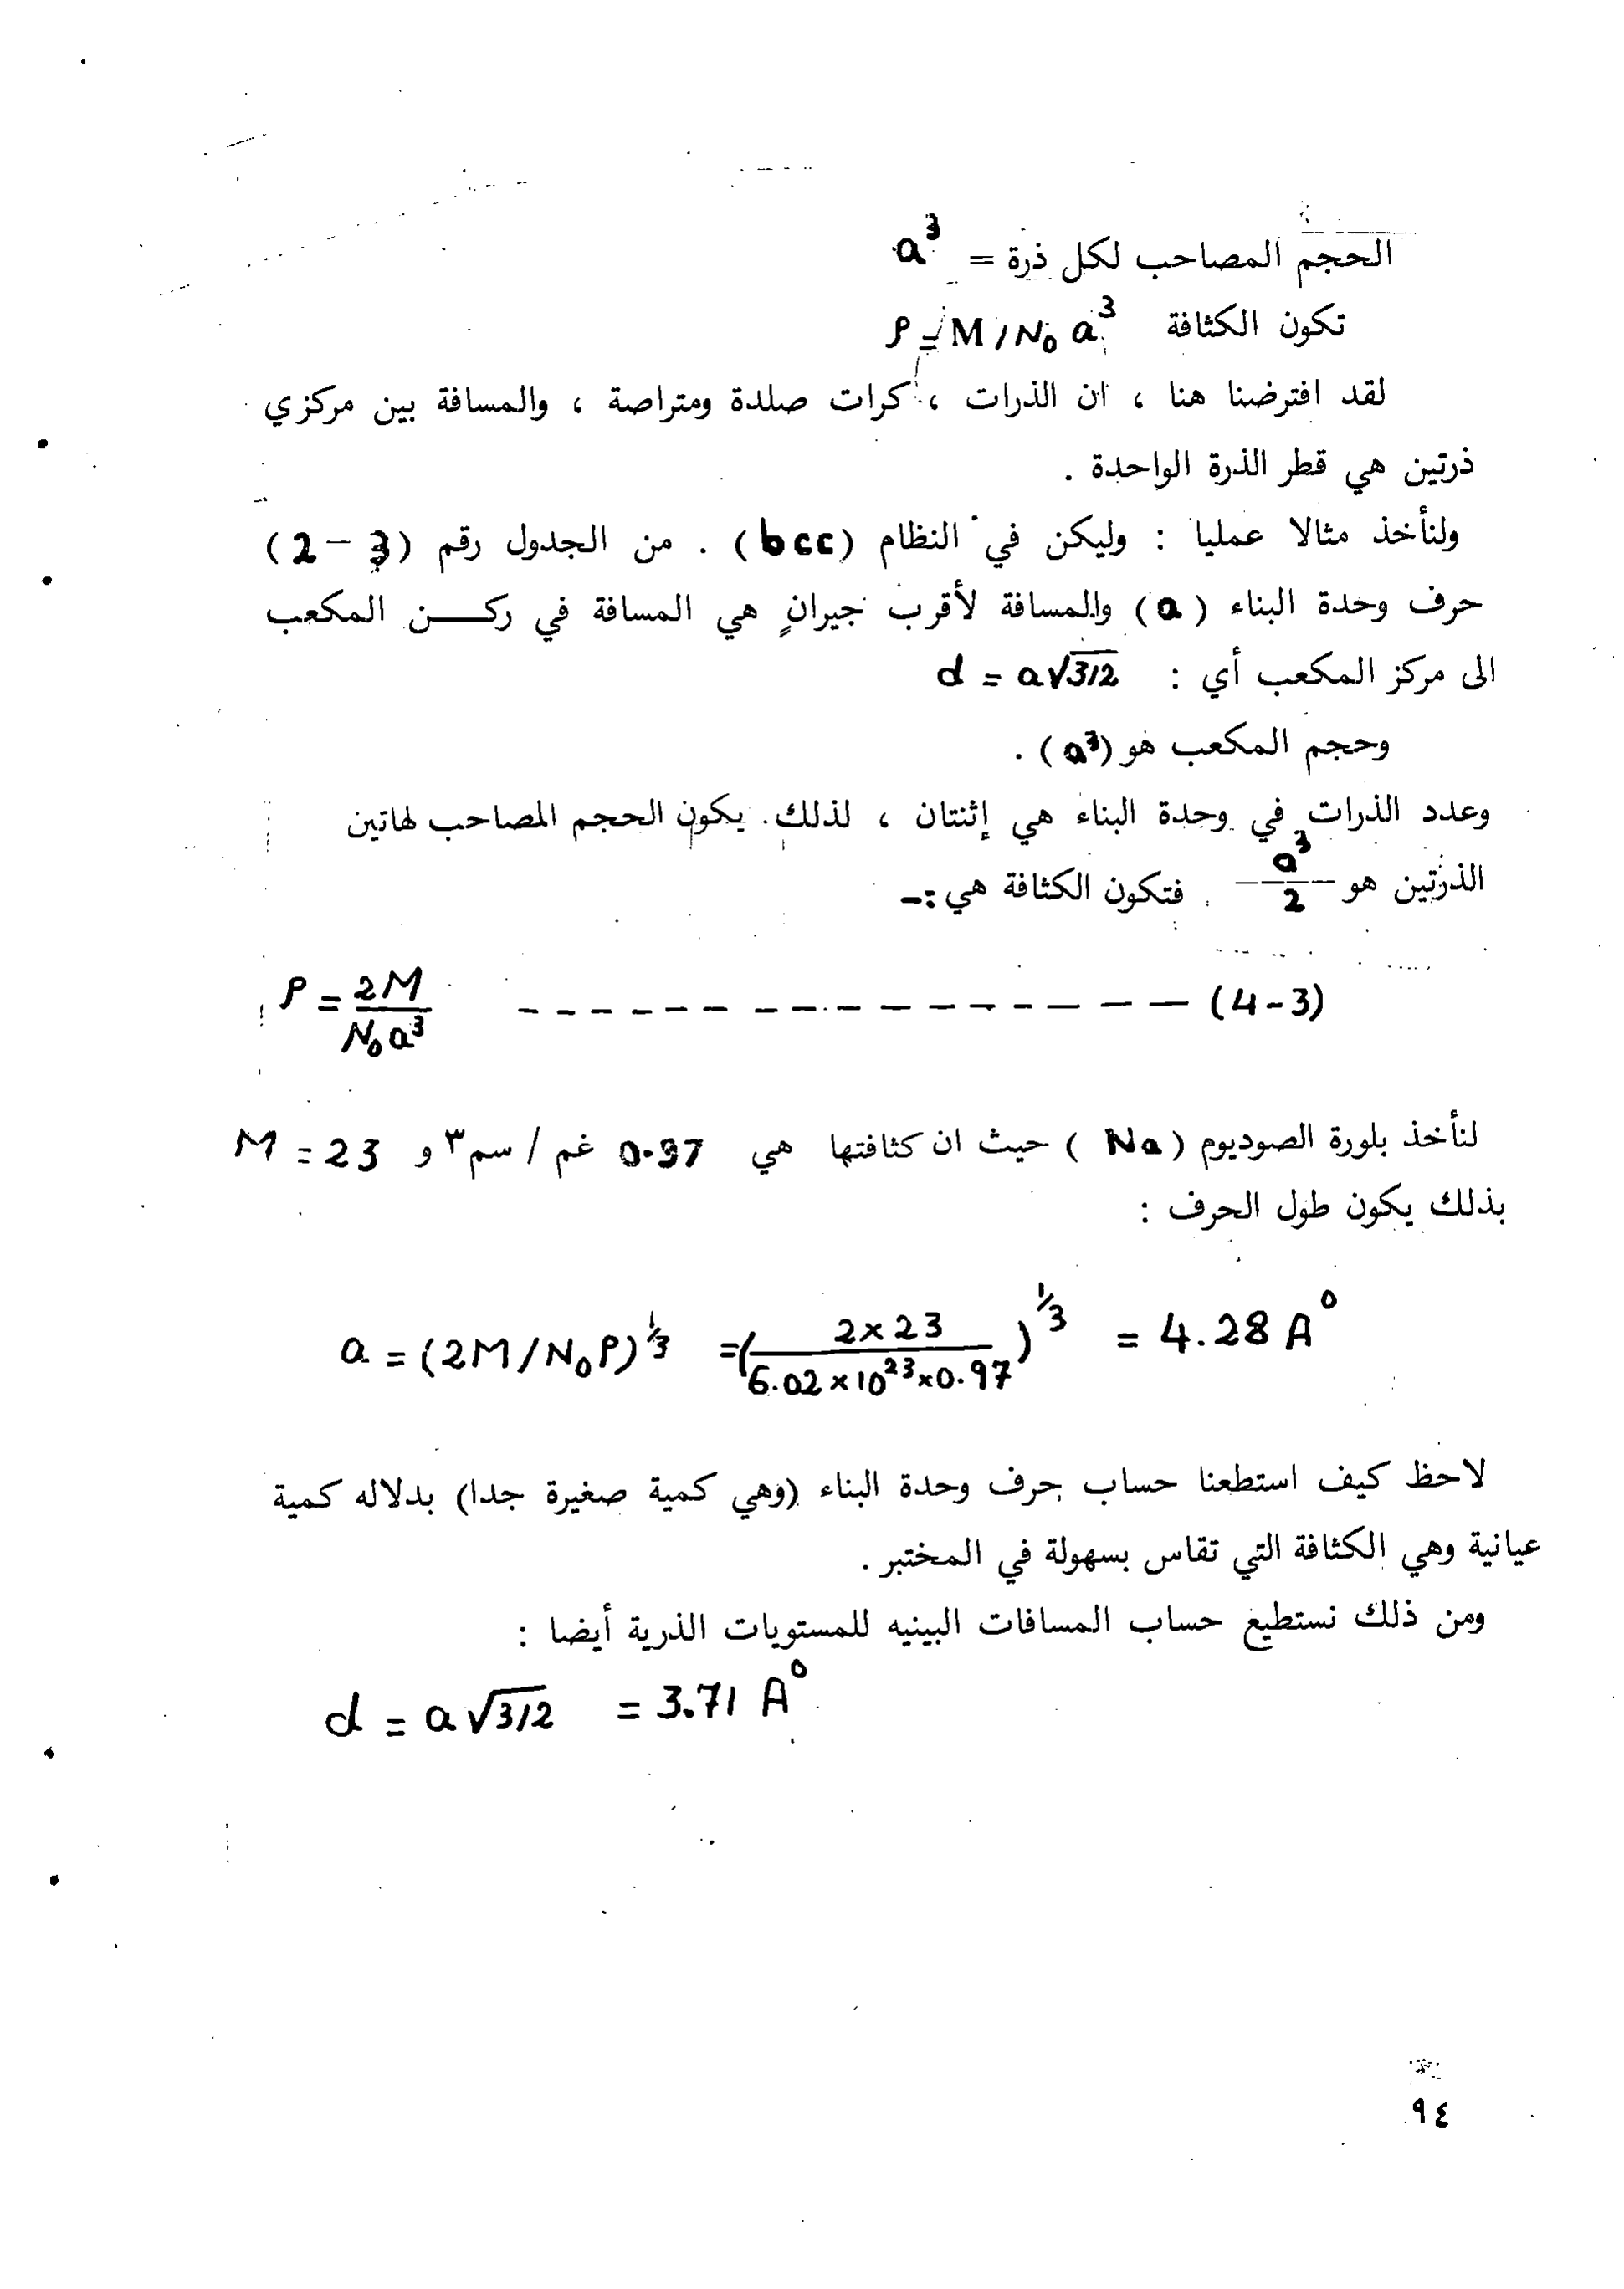 الحجم المصاحب لكل ذرة = a³
تكون الكثافة ρ = M / N₀ a³
لقد افترضنا هنا ، ان الذرات ، كرات صلدة ومتراصة ، والمسافة بين مركزي
ذرتين هي قطر الذرة الواحدة .
ولنأخذ مثالا عمليا : وليكن في النظام (bcc) . من الجدول رقم (3 – 2)
حرف وحدة البناء (a) والمسافة لأقرب جيرانٍ هي المسافة في ركـــن المكعب
الى مركز المكعب أي : d = a√3/2
وحجم المكعب هو (a³) .
وعدد الذرات في وحدة البناء هي إثنتان ، لذلك . يكون الحجم المصاحب لهاتين
الذرتين هو a³/2 فتكون الكثافة هي :-
ρ = 2M / N₀a³ – – – – – – – – – – – – – – – – – (4-3)
لنأخذ بلورة الصوديوم (Na) حيث ان كثافتها هي 0.97 غم / سم٣ و M = 23
بذلك يكون طول الحرف :
a = (2M/N₀ρ)^1/3 = (2×23 / 6.02×10²³×0.97)^1/3 = 4.28 A°
لاحظ كيف استطعنا حساب حرف وحدة البناء (وهي كمية صغيرة جدا) بدلاله كمية
عيانية وهي الكثافة التي تقاس بسهولة في المختبر .
ومن ذلك نستطيع حساب المسافات البينيه للمستويات الذرية أيضا :
d = a√3/2 = 3.71 A°
٩٤